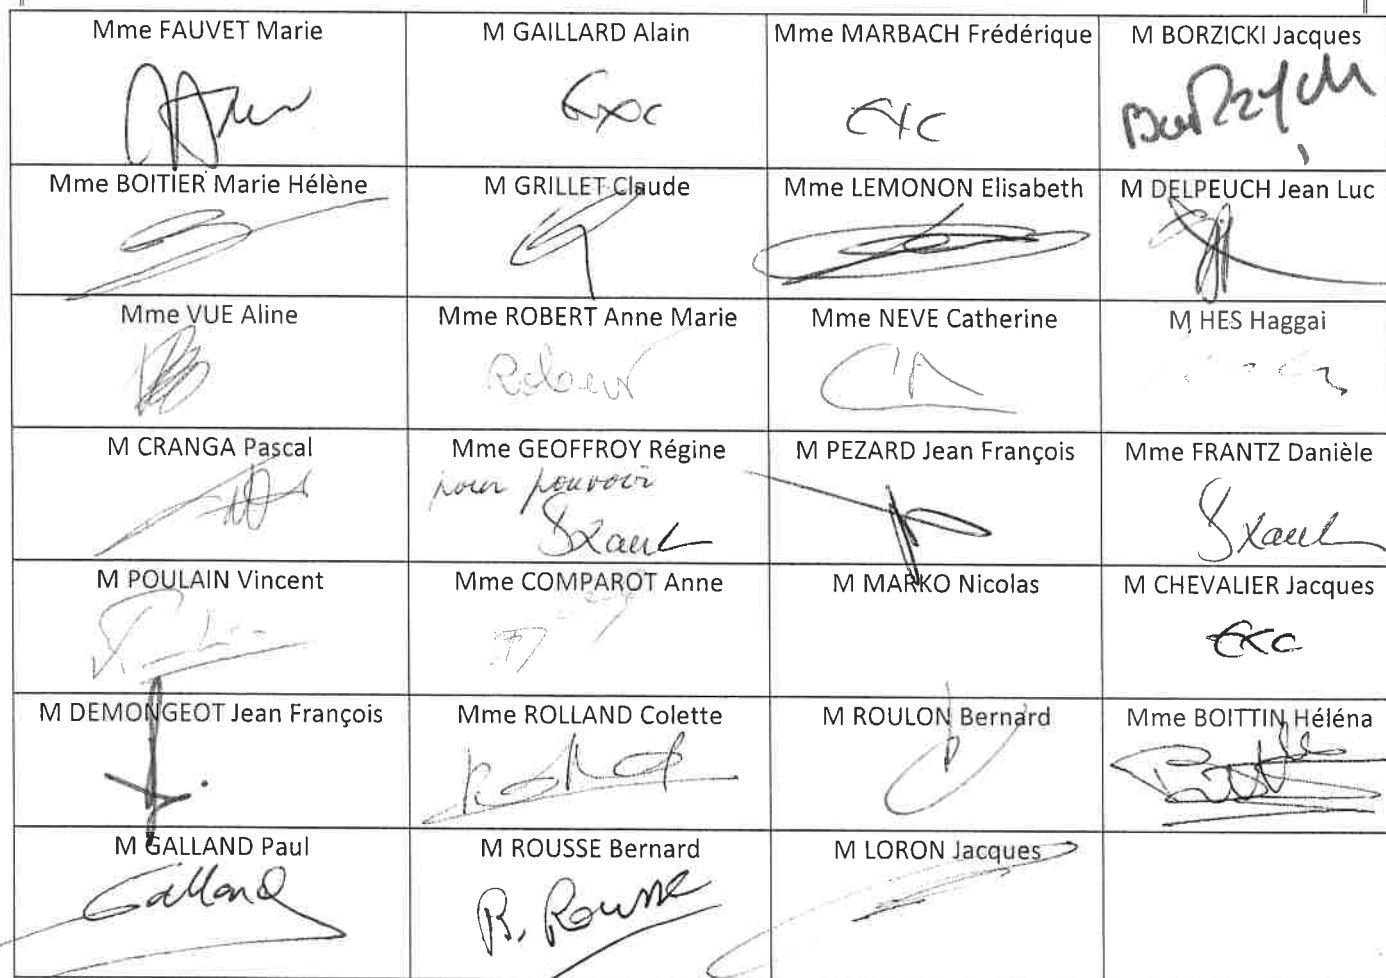 Mme FAUVET Marie
M GAILLARD Alain
Mme MARBACH Frédérique
M BORZICKI Jacques
Exc
Exc
Borzych
Mme BOITIER Marie Hélène
M GRILLET Claude
Mme LEMONON Elisabeth
M DELPEUCH Jean Luc
Mme VUE Aline
Mme ROBERT Anne Marie
Mme NEVE Catherine
M HES Haggai
Robert
M CRANGA Pascal
Mme GEOFFROY Régine
M PEZARD Jean François
Mme FRANTZ Danièle
pour pouvoir
M POULAIN Vincent
Mme COMPAROT Anne
M MARKO Nicolas
M CHEVALIER Jacques
Exc
M DEMONGEOT Jean François
Mme ROLLAND Colette
M ROULON Bernard
Mme BOITTIN Héléna
M GALLAND Paul
M ROUSSE Bernard
M LORON Jacques
Galland
B. Rousse